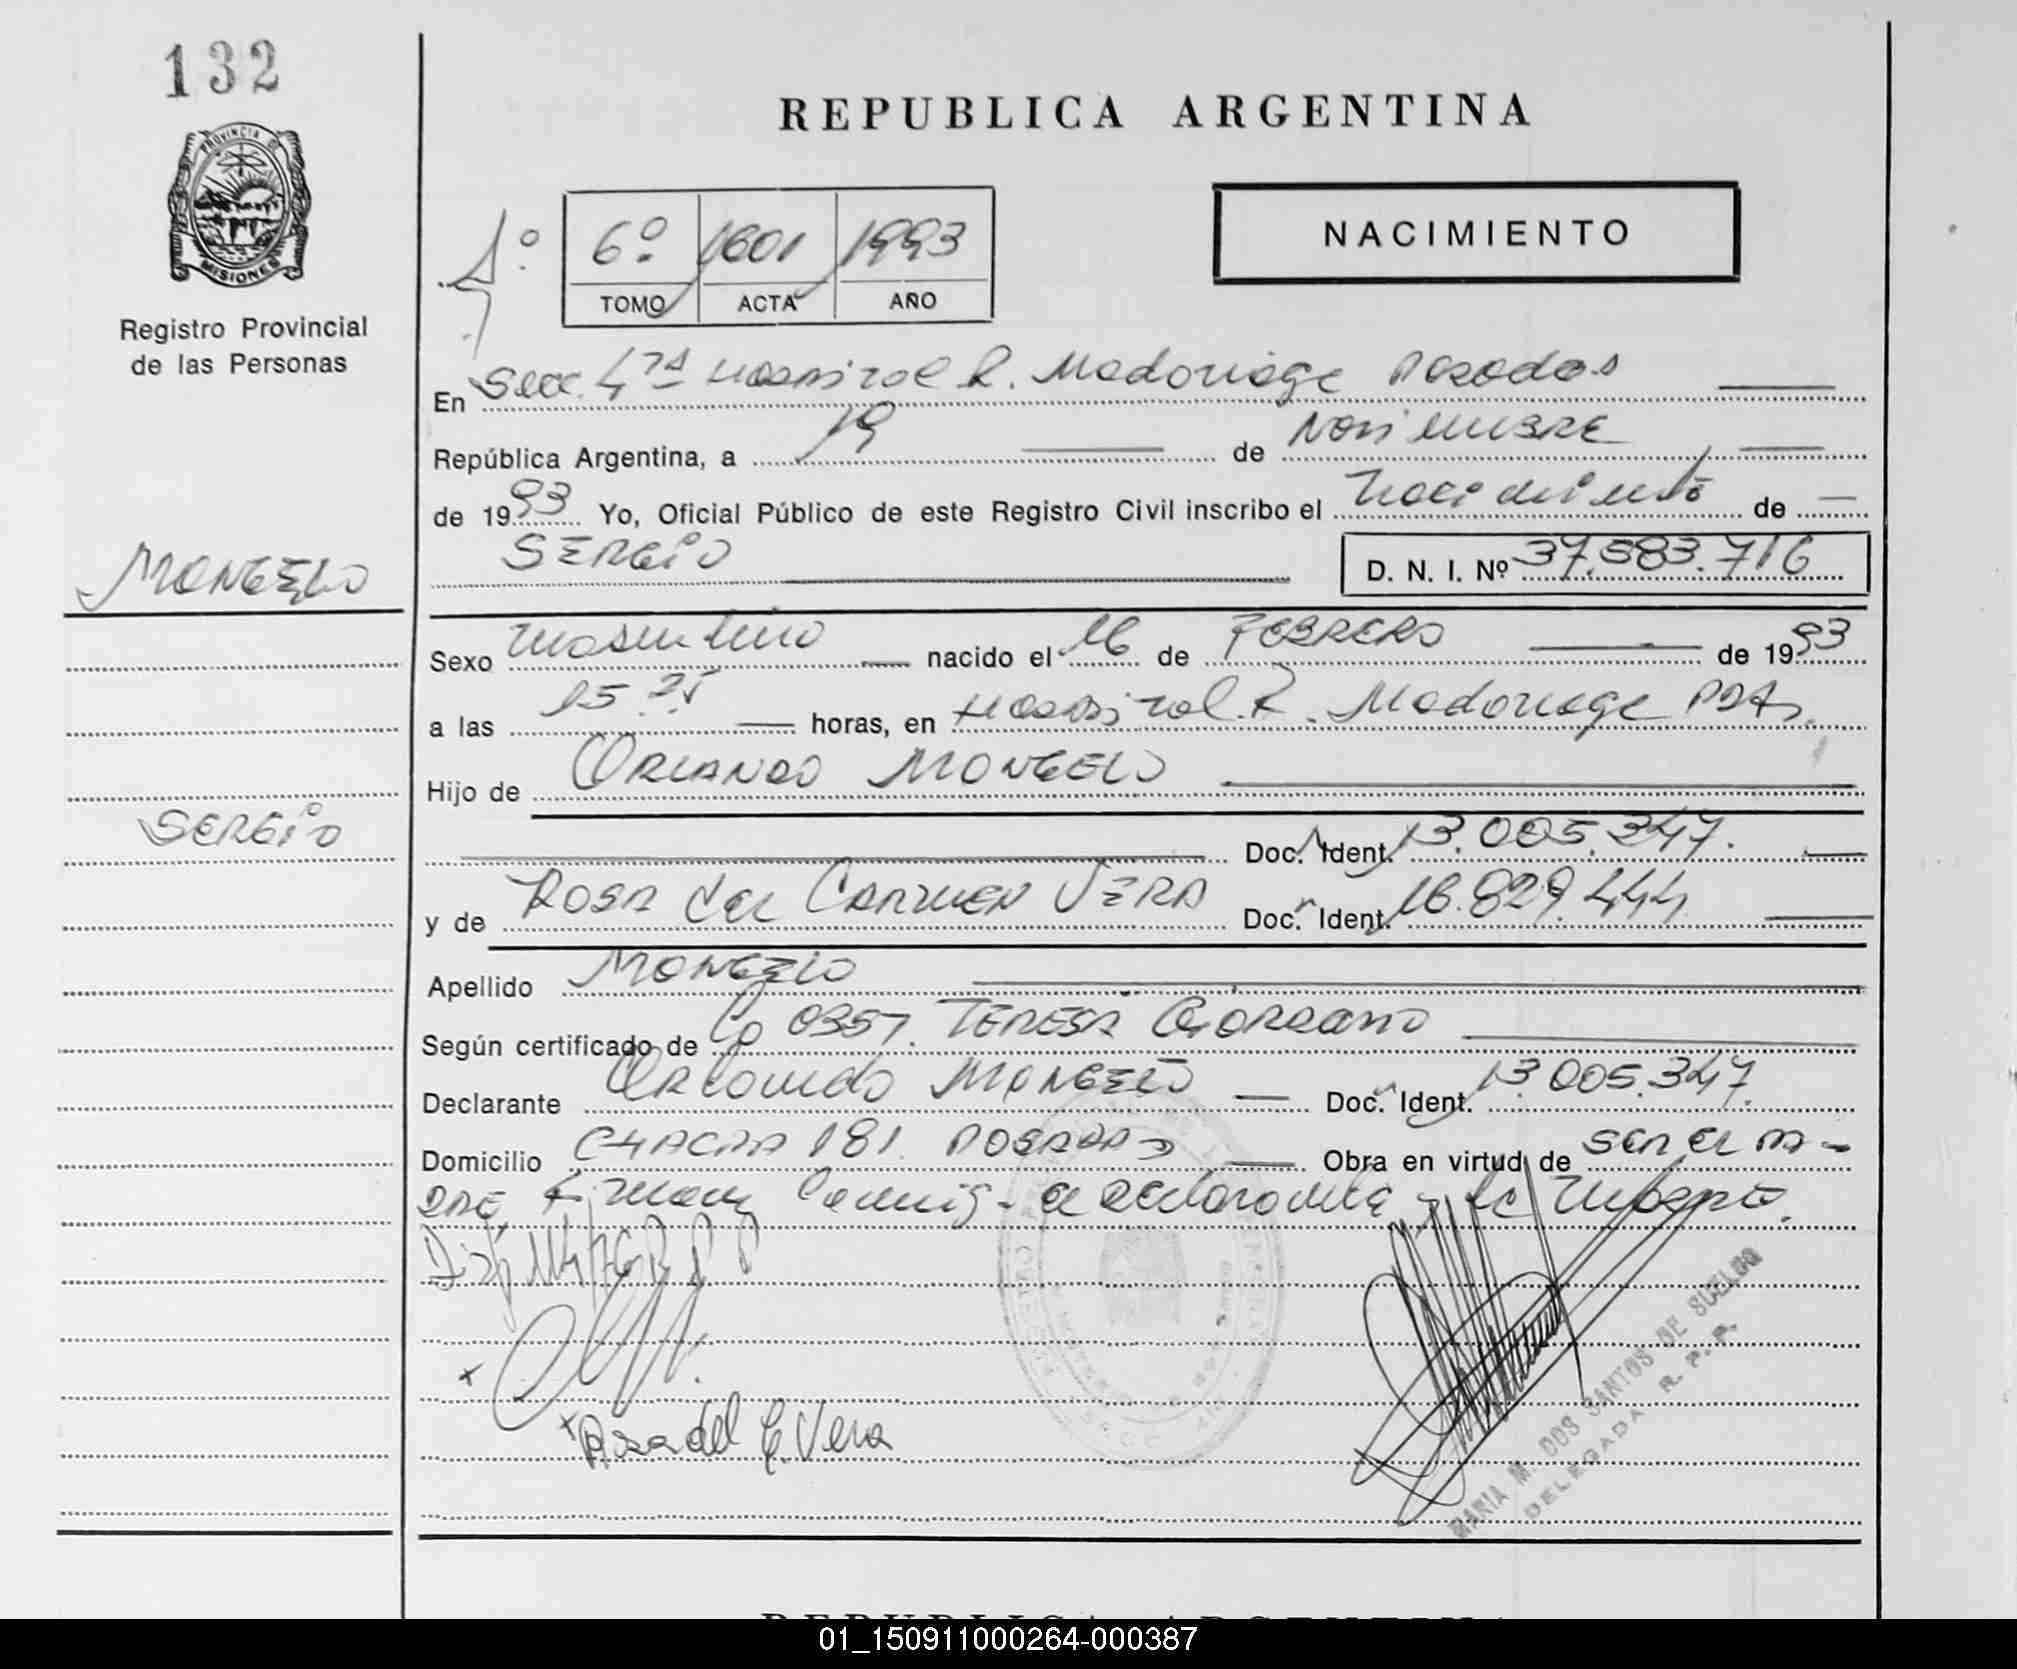 132
PROVINCIA DE
MISIONES
Registro Provincial
de las Personas
MONGELO
SERGIO
REPUBLICA ARGENTINA
NACIMIENTO
6º 1601 1993
TOMO ACTA AÑO
En Secc. 4ta Hospital R. Madariaga Posadas
República Argentina, a 19 de Noviembre
de 1993 Yo, Oficial Público de este Registro Civil inscribo el Nacimiento de
SERGIO D. N. I. Nº 37.583.716
Sexo masculino nacido el 16 de FEBRERO de 1993
a las 15 25 horas, en Hospital R. Madariaga PDAS.
Hijo de ORLANDO MONGELO
Doc. Ident. 13.005.347.
y de ROSA del CARMEN VERA Doc. Ident. 16.829.444
Apellido MONGELO
Según certificado de Co 0357. TERESA
Declarante Orlando MONGELO Doc. Ident. 13.005.347.
Domicilio CHACRA 181. POSADAS Obra en virtud de ser el PA-
DRE, Firman conmig- el declarante y la Madre.
Rosa del C. Vera
MARIA M. DOS SANTOS DE SUELDO
DELEGADA R. P. P.
REPUBLICA ARGENTINA
01_150911000264-000387